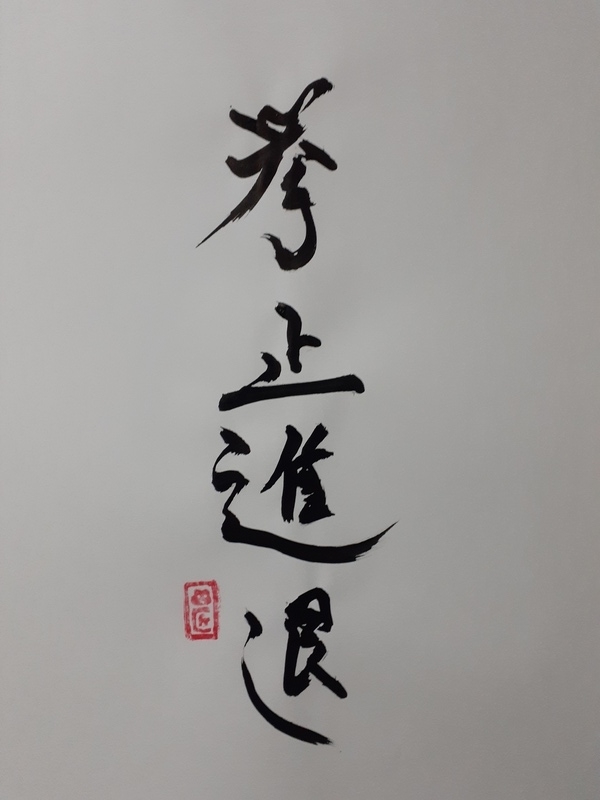 挙止進退